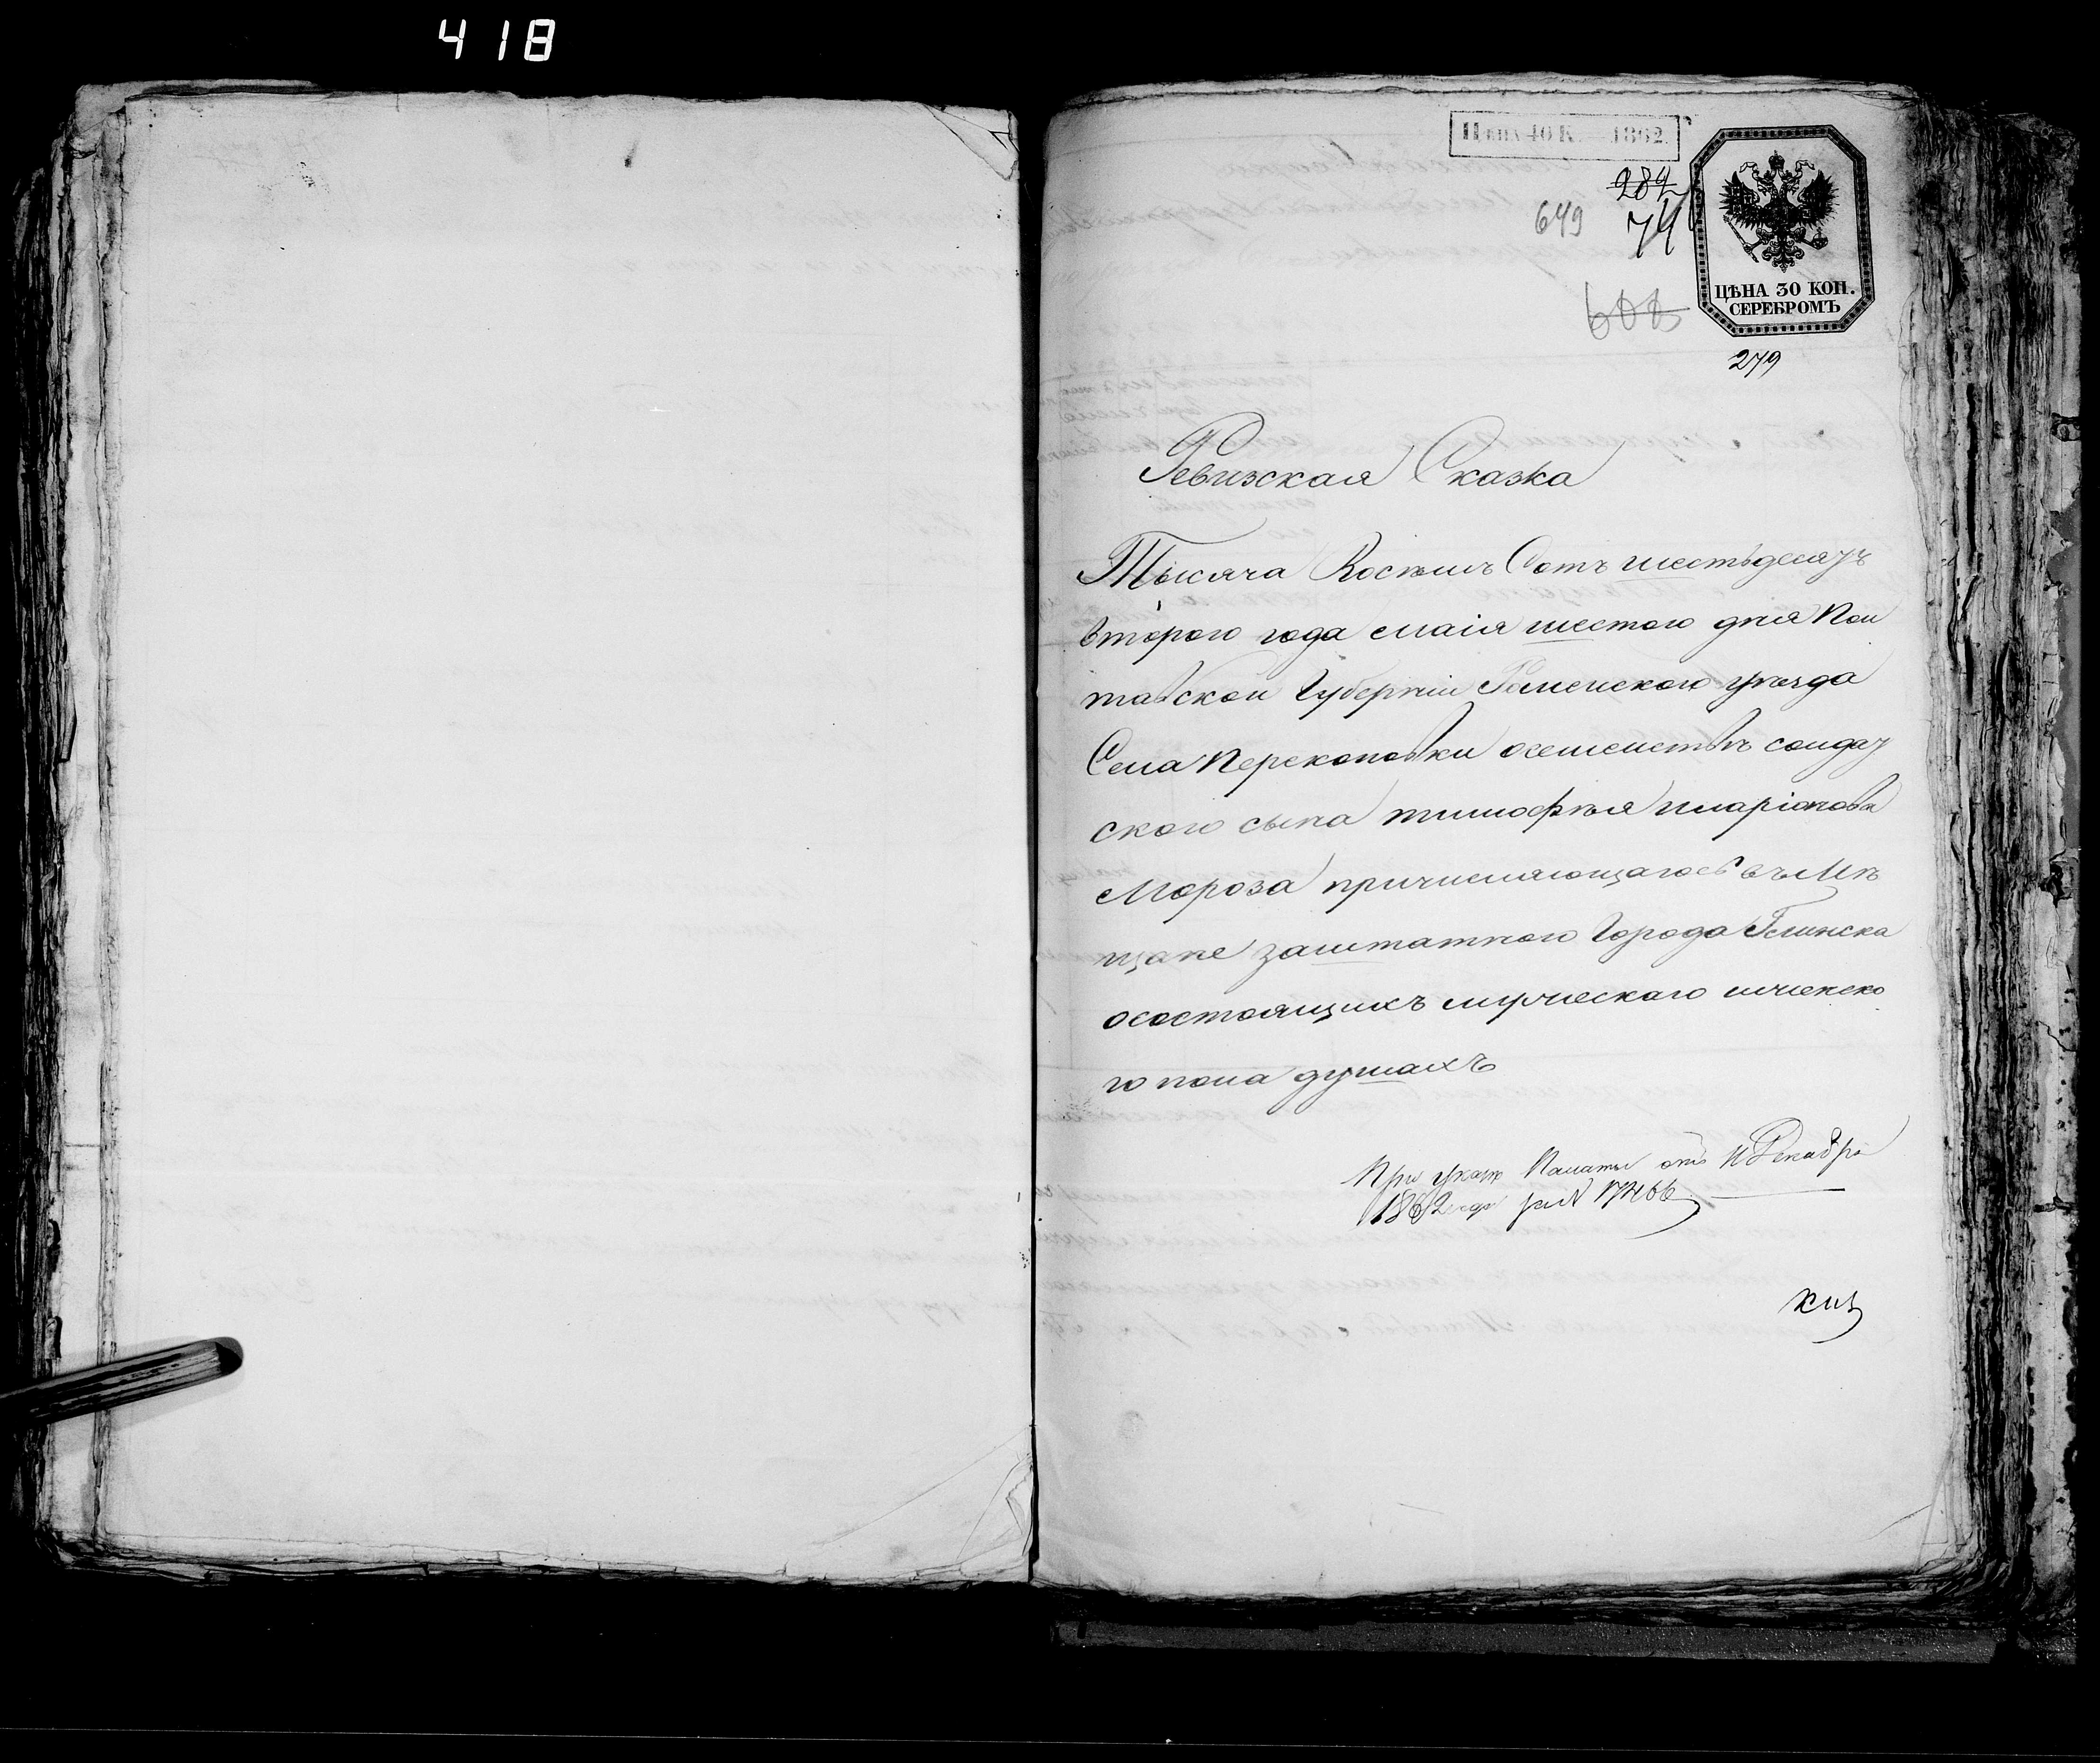 418
Цена 40 К. 1862.
282
649 74
603
ЦѢНА 30 КОП.
СЕРЕБРОМЪ
279
Ревизская Сказка
Тысяча Восѣмъ Сотъ шестьдесятъ
второго года маія шестого дня Пол
тавской Губерніи Роменского уѣзда
Села Перекоповки осемействѣ солдат
ского сына тимофѣя иларіонова
Мороза причисляющагось въ Мѣ
щане заштатного Города Глинска
осостоящихъ мужескаго иженско
го пола душахъ
При указѣ Палаты отъ 11 Декабря
1862 года за N 17466